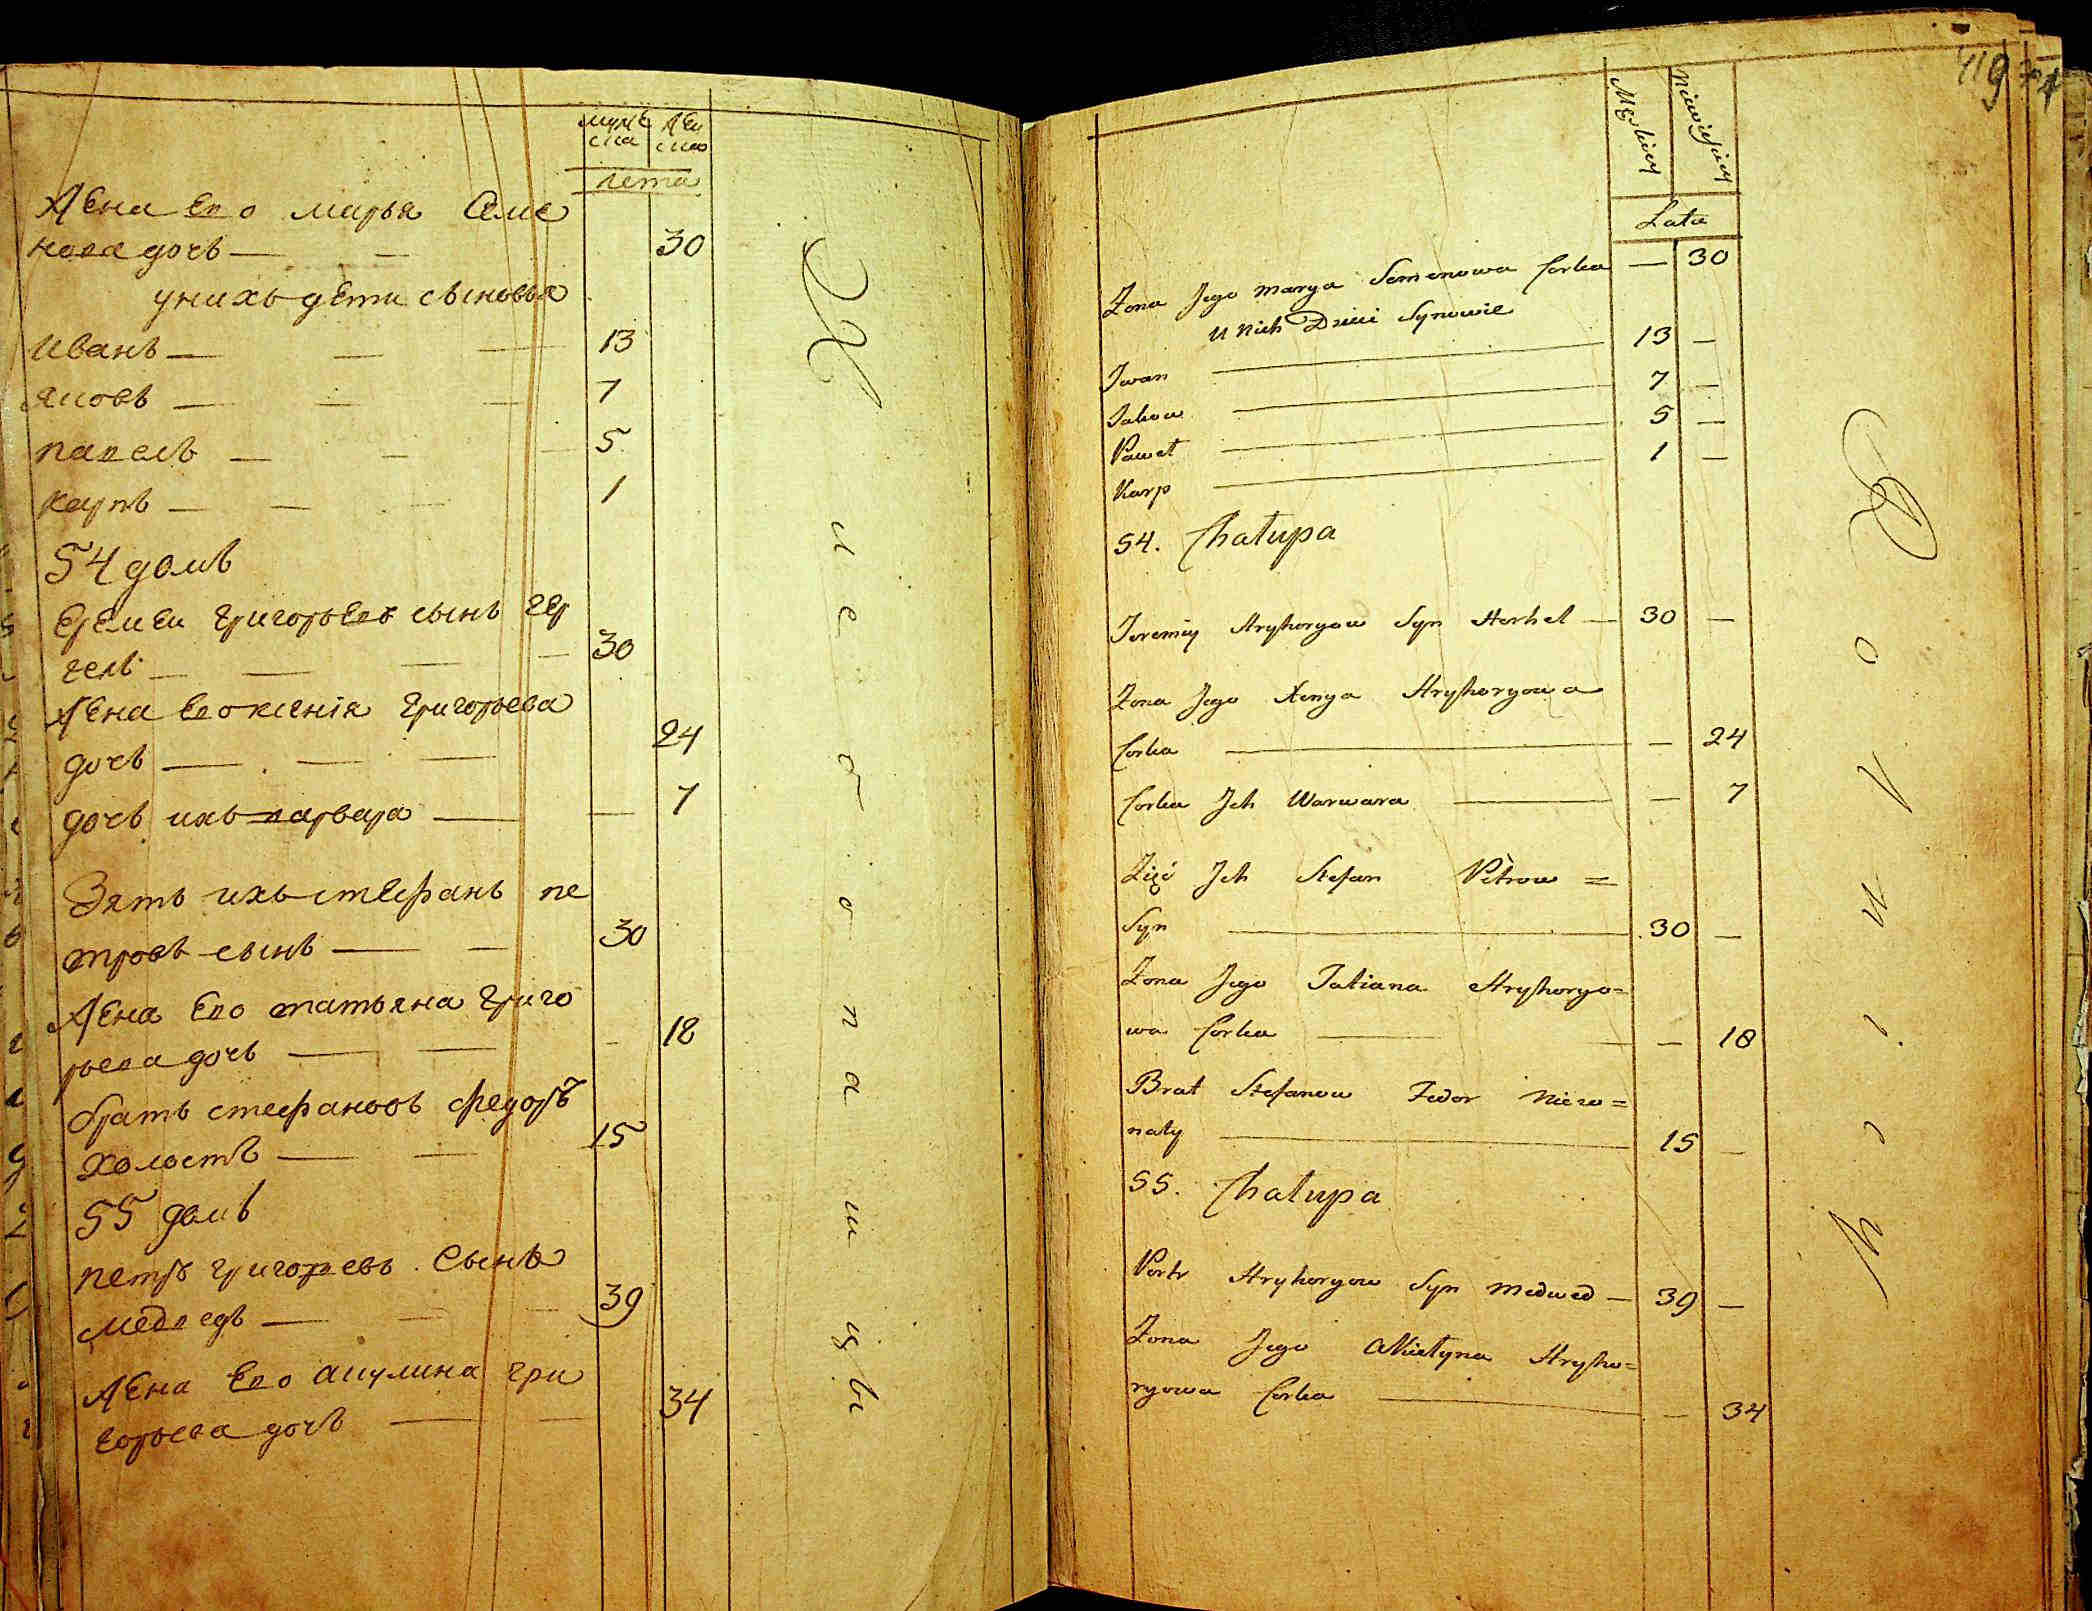 мужеска женска
лета
жена его марья Семе
нова дочь — — 30
у нихъ дети сыновья
иванъ — — — 13
яковъ — — — 7
павелъ — — — 5
карпъ — — — 1
54 домъ
Еремеи григорьевъ сынъ гер
гель — — — — 30
жена его ксенiя григорьева
дочь — — — 24
дочь ихъ варвара — — 7
Зять ихъ стефанъ пе
тровъ сынъ — — 30
жена его татьяна григо
рьева дочь — — — 18
братъ стефановъ федоръ
холостъ — — — 15
55 домъ
петръ григорьевъ Сынъ
медведь — — — 39
жена его акулина гри
горьева дочь — — 34
Męskiey Niewieściey
Lata
Żona Jego Marya Semenowa Corka — 30
U Nich Dzieci Synowie
Iwan — 13 —
Jakow — 7 —
Paweł — 5 —
Karp — 1 —
54. Chałupa
Jeremiy Hryhoryow Syn Herhel — 30 —
Żona Jego Xenya Hryhoryowa
Corka — — 24
Corka Jch Warwara — — 7
Zięć Jch Stefan Pétrow =
Syn — 30 —
Żona Jego Tatiana Hryhoryo=
wa Corka — — — 18
Brat Stefanow Fedor Nieżo=
naty — 15 —
55. Chałupa
Piotr Hryhoryow Syn Medwed — 39 —
Żona Jego Akulyna Hryho=
ryowa Corka — — 34